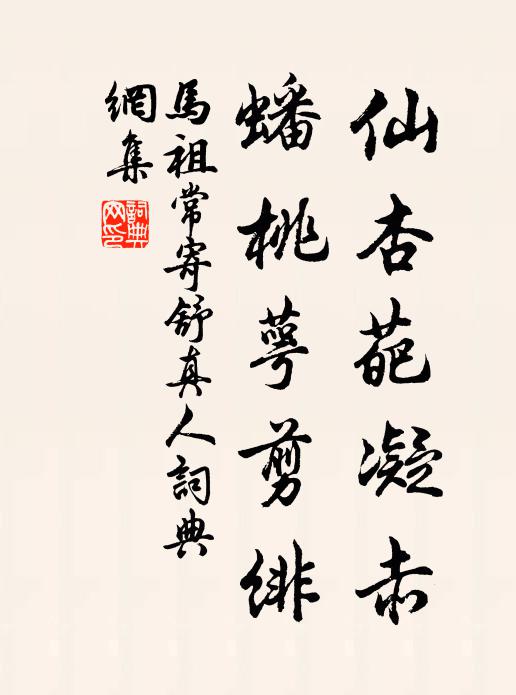 仙杏葩凝赤
蟠桃萼剪緋
馬祖常寄舒真人詞典
網集
詞典網印